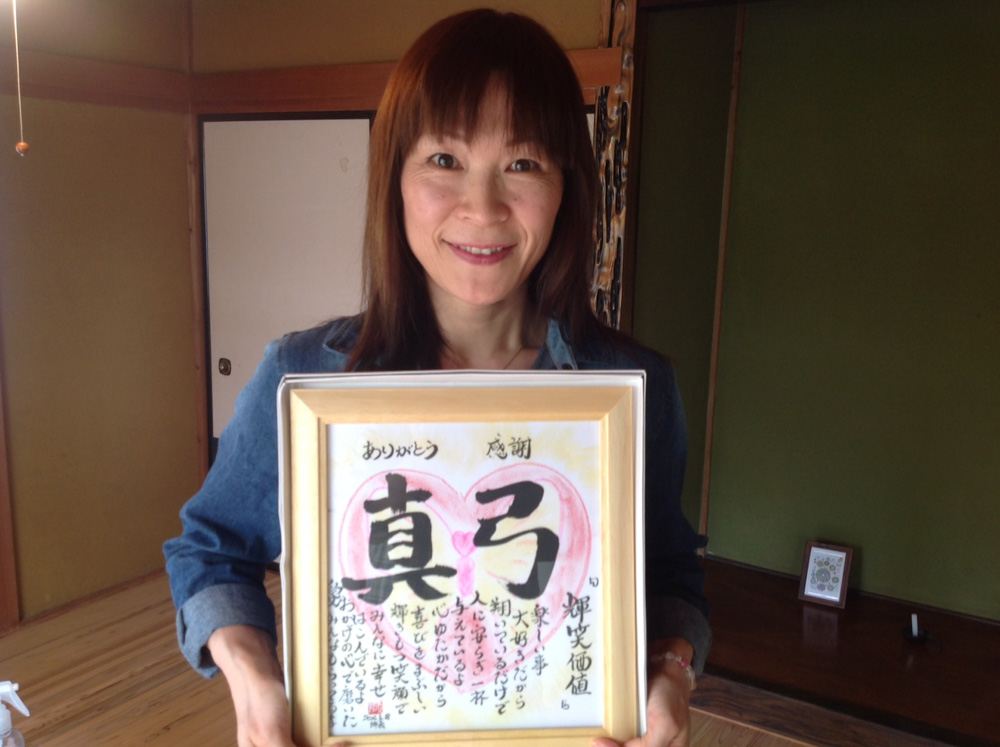 ありがとう 感謝
真弓
『輝笑価値』
楽しい事
大好きだから
翔いているだけで
人に安らぎ一杯
与えているよ
心ゆたかだから
喜びをまぶしい
輝きもつ笑顔で
みんなに幸せ
はこんでいるよ
おかげの心で磨いた